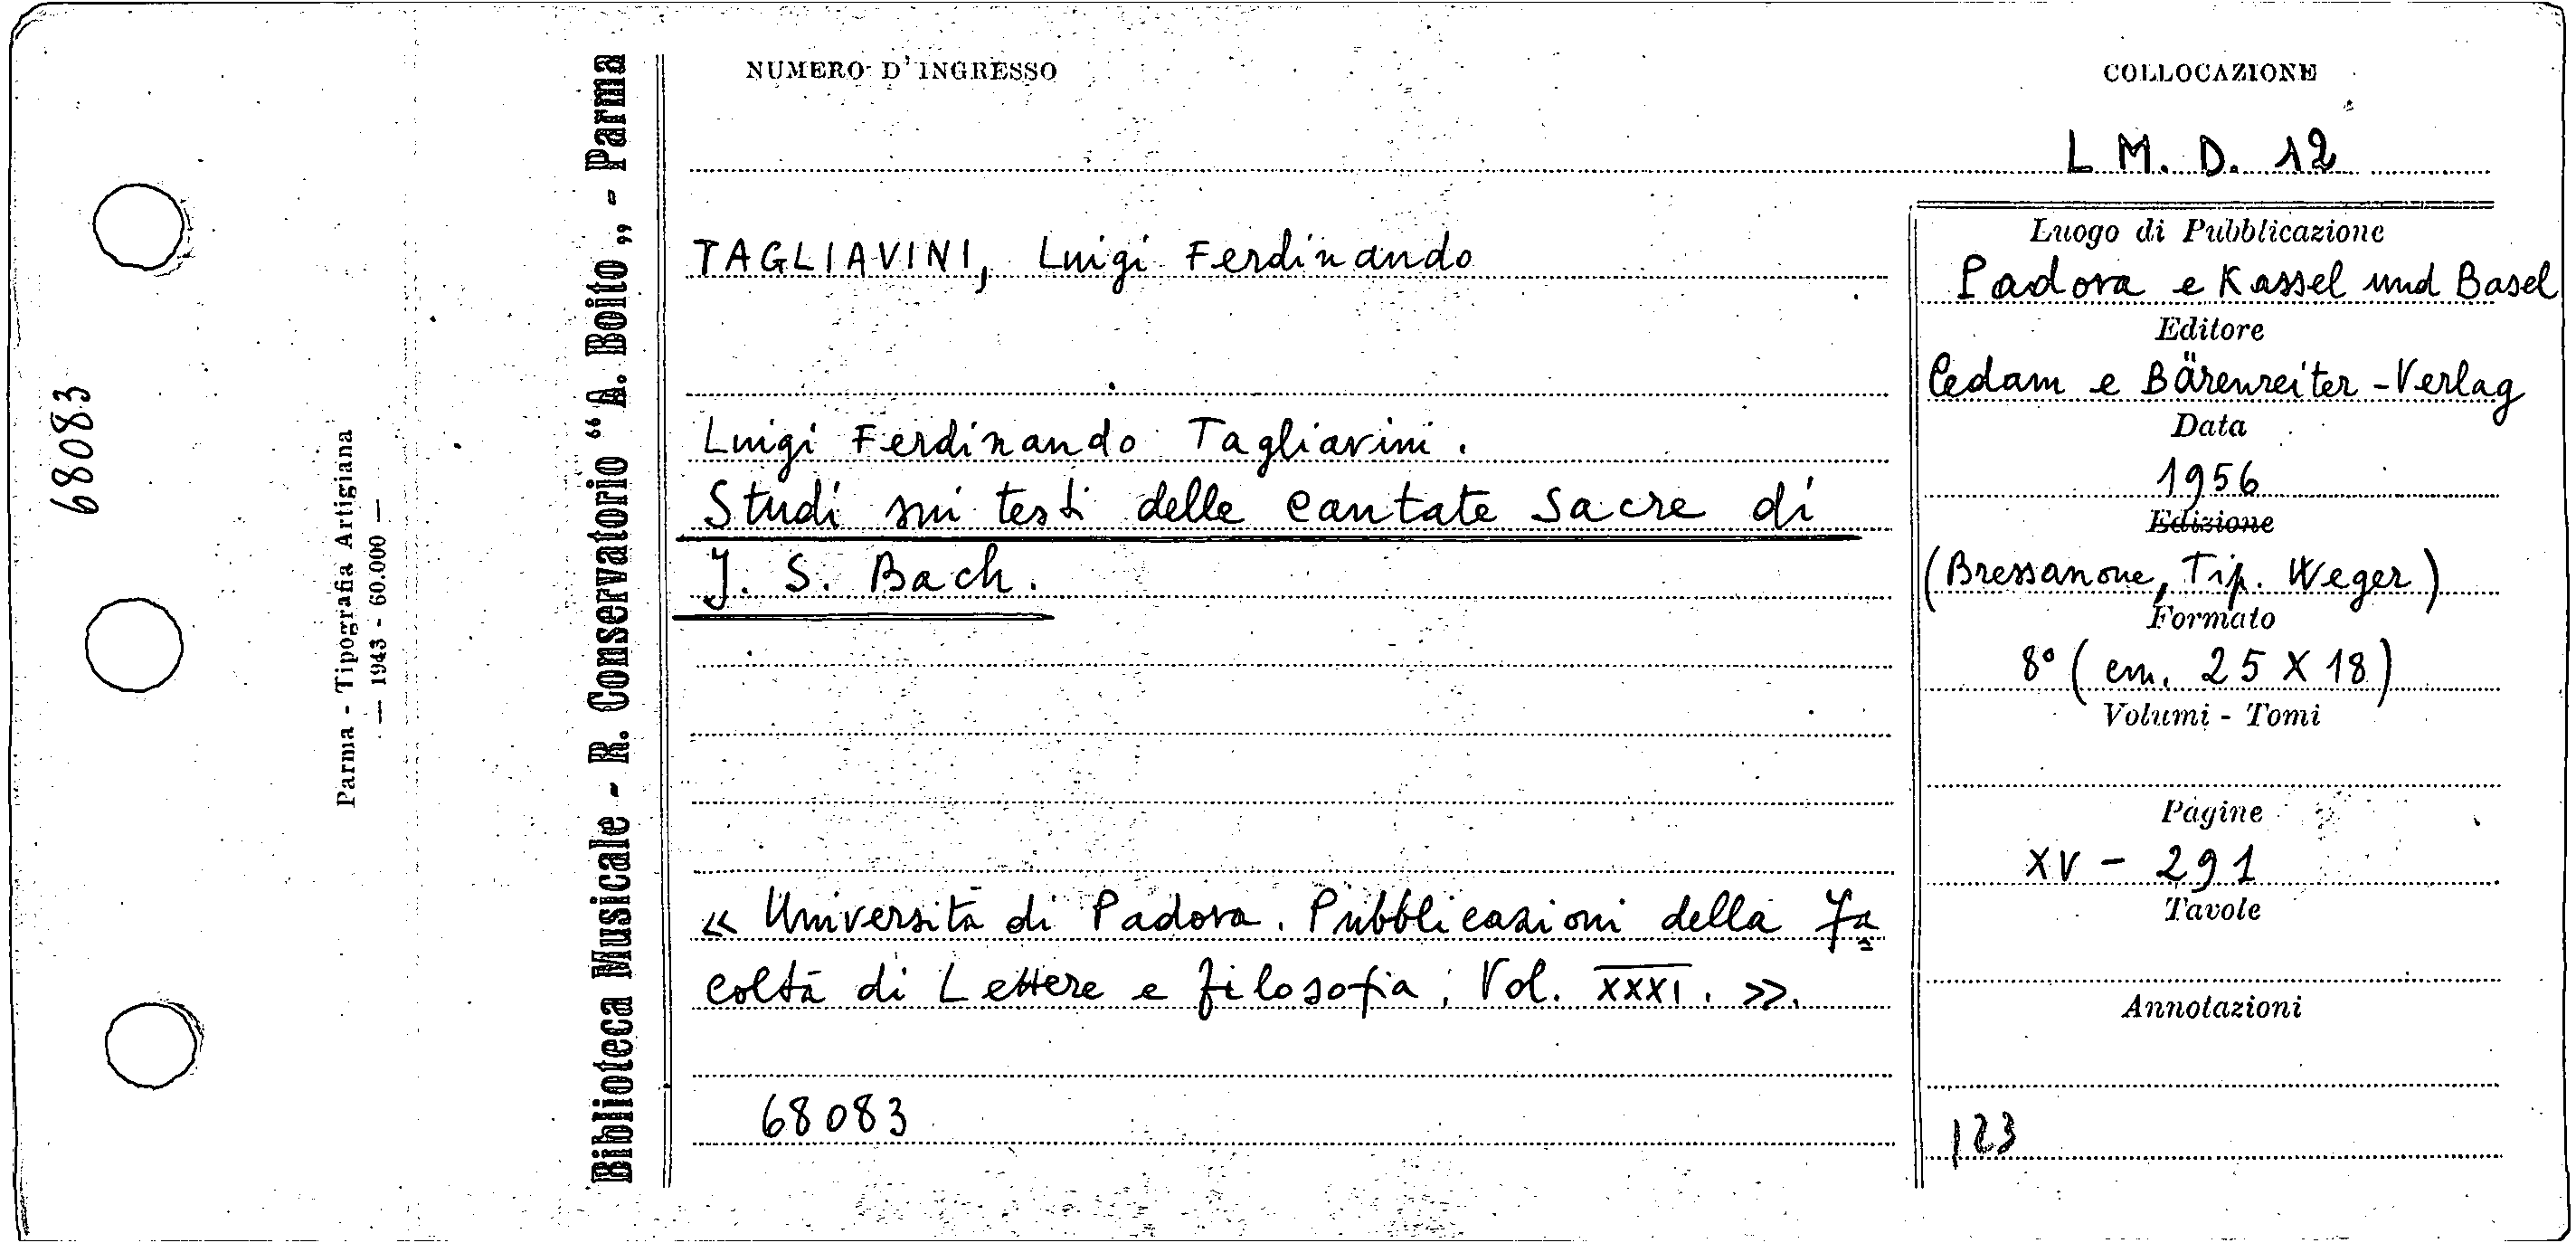 68083
Parma - Tipografia Artigiana
— 1943 - 60.000 —
Biblioteca Musicale - R. Conservatorio “A. Boito„ - Parma
NUMERO D'INGRESSO
COLLOCAZIONE
L M. D. 12
TAGLIAVINI, Luigi Ferdinando
Luigi Ferdinando Tagliavini.
Studi sui testi delle cantate sacre di
J. S. Bach.
« Università di Padova. Pubblicazioni della Fa
coltà di Lettere e filosofia; Vol. XXXI. ».
68083
Luogo di Pubblicazione
Padova e Kassel und Basel
Editore
Cedam e Bärenreiter-Verlag
Data
1956
Edizione
(Bressanone, Tip. Weger)
Formato
8° (cm. 25 X 18)
Volumi - Tomi
Pagine
XV - 291
Tavole
Annotazioni
123